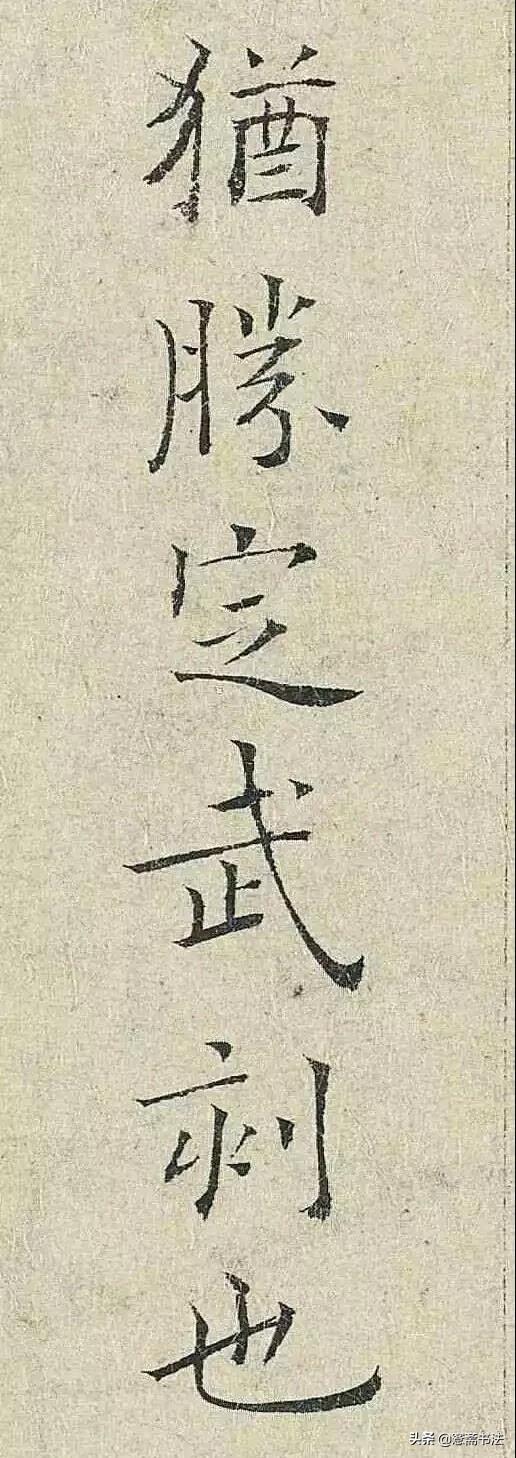 猶勝定武刻也
头条 @薏斋书法